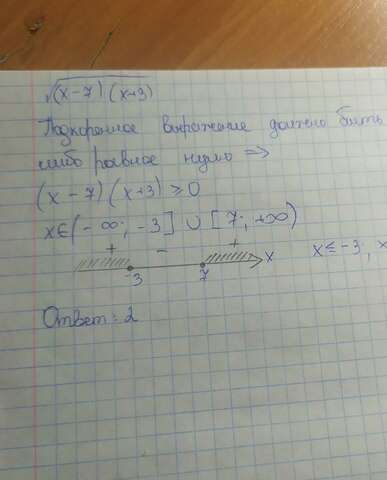 √(x-7)(x+3)
Подкоренное выражение должно быть
либо равное нулю =>
(x - 7)(x+3) ≥ 0
x∈(-∞; -3] ∪ [7; +∞)
+ - +
-3 7 x
x ≤ -3; x
Ответ: 2